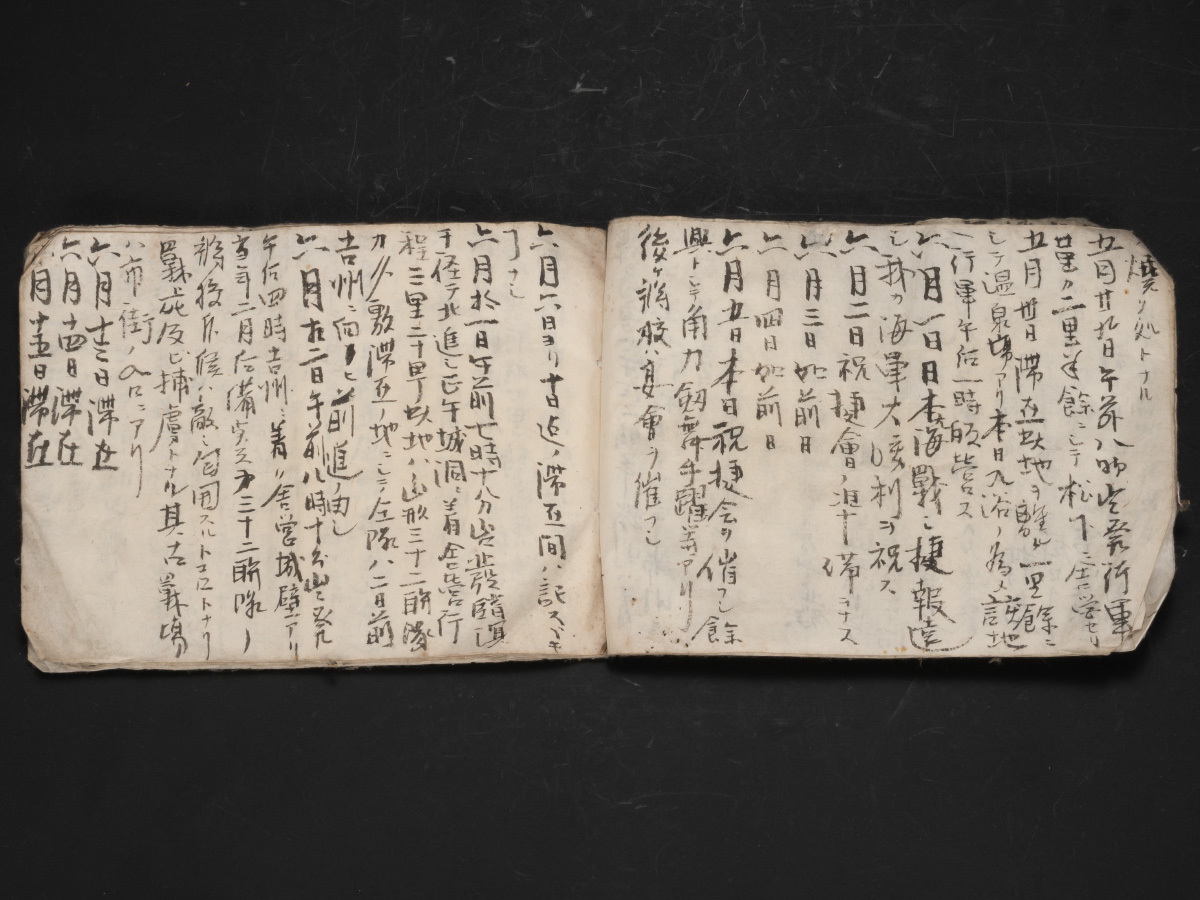 焼ク処トナル
五月廿九日午前八時出発行軍
廿里カ二里半餘ニシテ松下ニ舎営セリ
五月卅日滞在此地ヲ離ル一里餘ニ
シテ温泉場アリ本日入浴ノ為メ該地
ニ行軍午后一時皈営ス
六月一日日本海戦ノ捷報達
シ我カ海軍大勝利ヲ祝ス
六月二日祝捷會ノ準備ヲナス
六月三日如前日
六月四日如前日
六月五日本日祝捷会ヲ催フシ餘
興トシテ角力劔舞手躍等アリ
後ヶ酒肴ハ宴會ヲ催フシ
六月六日ヨリ十日迄ノ滞在間ハ記スベキ
了ナシ
六月拾一日午前七時十分出発臨溟
ヲ経テ北進シ正午城洞ニ着舎営行
程三里二十町此地ハ山形三十二聯隊
カ久敷滞在ノ地ニシテ仝隊ハ二日前
吉州ニ向ヒ前進ノ由シ
六月十二日午前八時十分出発
午后四時吉州ニ着ク舎営城壁アリ
当年二月后備歩兵第三十二聯隊ノ
将校斥候ハ敵ニ包囲スルトコロトナリ
戦死及ビ捕虜トナル其古戦場
ハ市街ノ入口ニアリ
六月十三日滞在
六月十四日滞在
六月十五日滞在